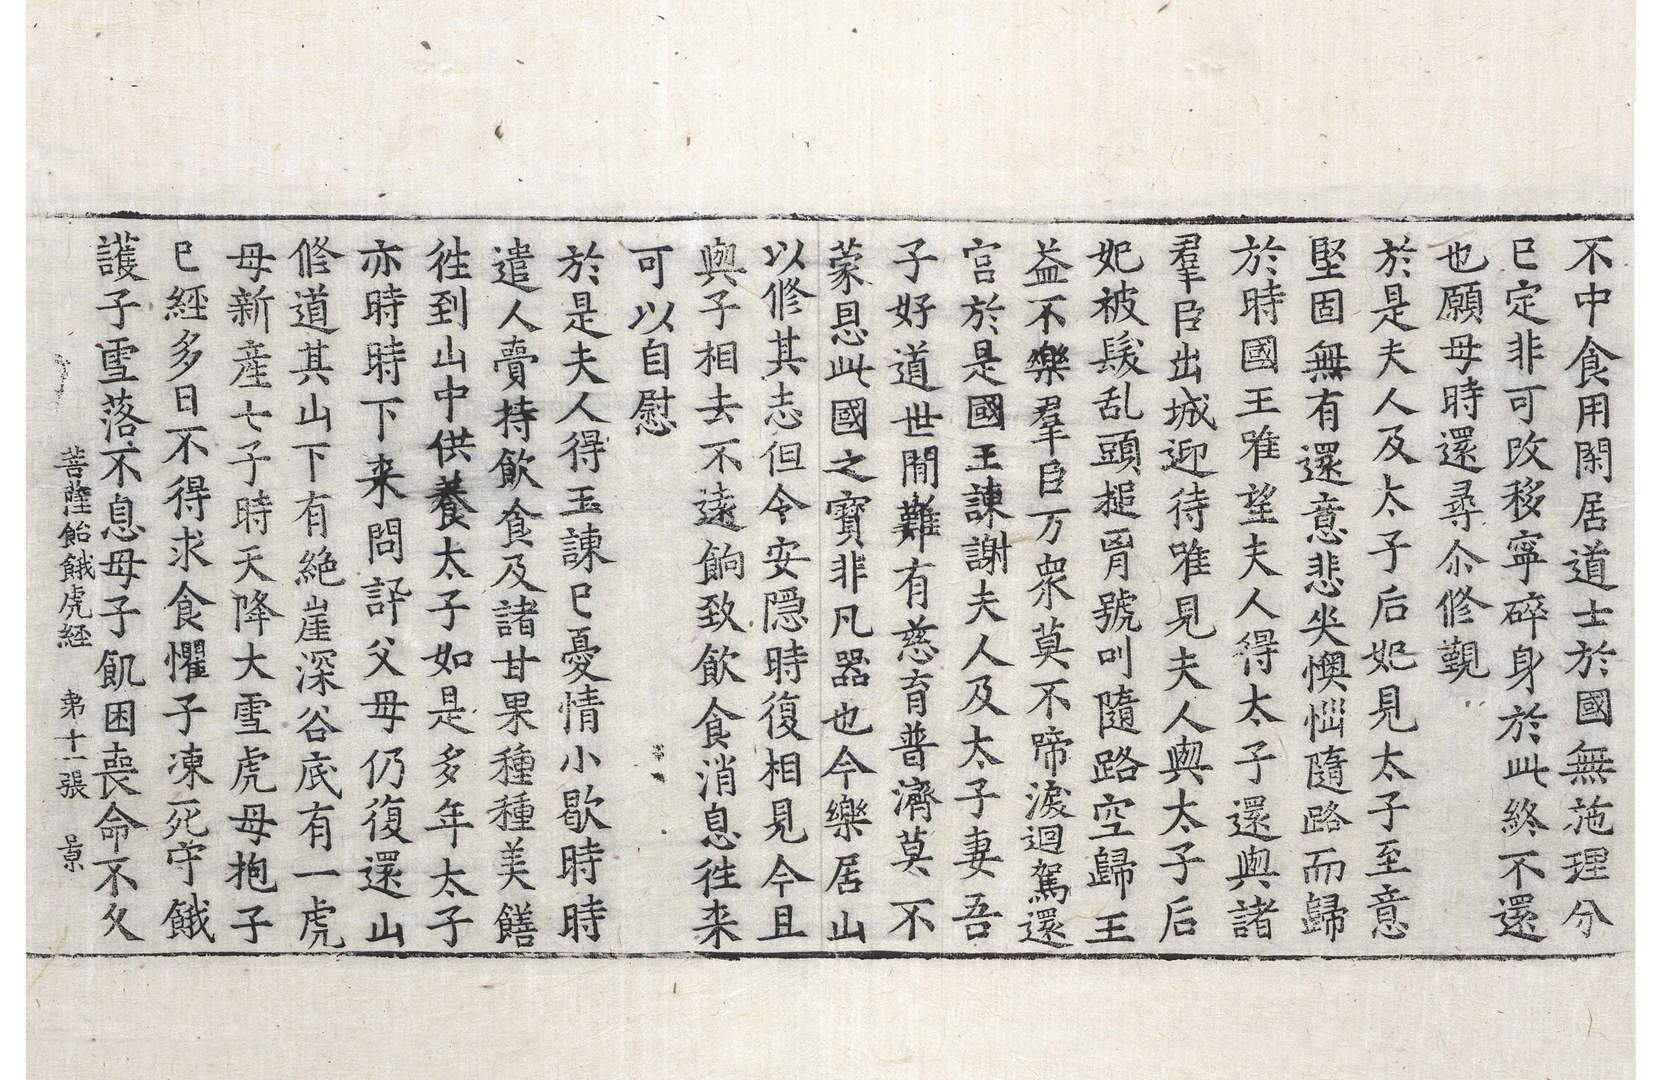 不中食用閑居道士於國無施理分
已定非可改移寧碎身於此終不還
也願母時還尋尒修覲
於是夫人及太子后妃見太子至意
堅固無有還意悲哭懊惱隨路而歸
於時國王唯望夫人得太子還與諸
羣臣出城迎待唯見夫人與太子后
妃被髮乱頭搥胷號叫隨路空歸王
益不樂羣臣万衆莫不啼淚迴駕還
宮於是國王諫謝夫人及太子妻吾
子好道世間難有慈育普濟莫不
蒙恩此國之寶非凡器也今樂居山
以修其志但令安隱時復相見今且
與子相去不遠餉致飲食消息往来
可以自慰
於是夫人得王諫已憂情小歇時時
遣人賷持飲食及諸甘果種種美饍
往到山中供養太子如是多年太子
亦時時下来問訊父母仍復還山
修道其山下有絶崖深谷底有一虎
母新産七子時天降大雪虎母抱子
已經多日不得求食懼子凍死守餓
護子雪落不息母子飢困喪命不久
菩薩飴餓虎経 苐十一張 景